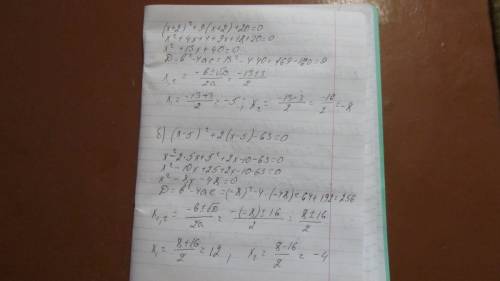 (x+2)²+9(x+2)+20=0
x²+4x+4+9x+18+20=0
x²+13x+40=0
D=b²-4ac=13²-4·40=169-160=9
x₁,₂=(-b±√D)/2a=(-13±3)/2
x₁=(-13+3)/2=-5; x₂=(-13-3)/2=-16/2=-8
б) (x-5)²+2(x-5)-63=0
x²-2·5x+5²+2x-10-63=0
x²-10x+25+2x-10-63=0
x²-8x-48=0
D=b²-4ac=(-8)²-4·(-48)=64+192=256
x₁,₂=(-b±√D)/2a=(-(-8)±16)/2=(8±16)/2
x₁=(8+16)/2=12, x₂=(8-16)/2=-4